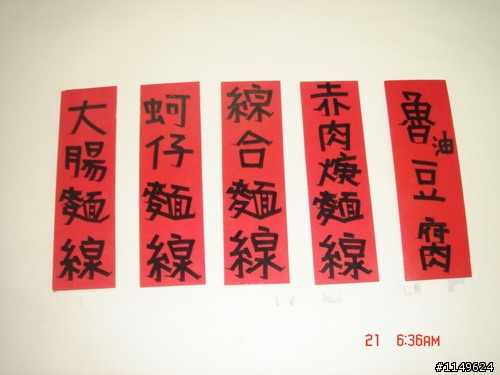 大腸麵線
蚵仔麵線
綜合麵線
赤肉焿麵線
魯油豆腐
21 6:36AM
#1149624